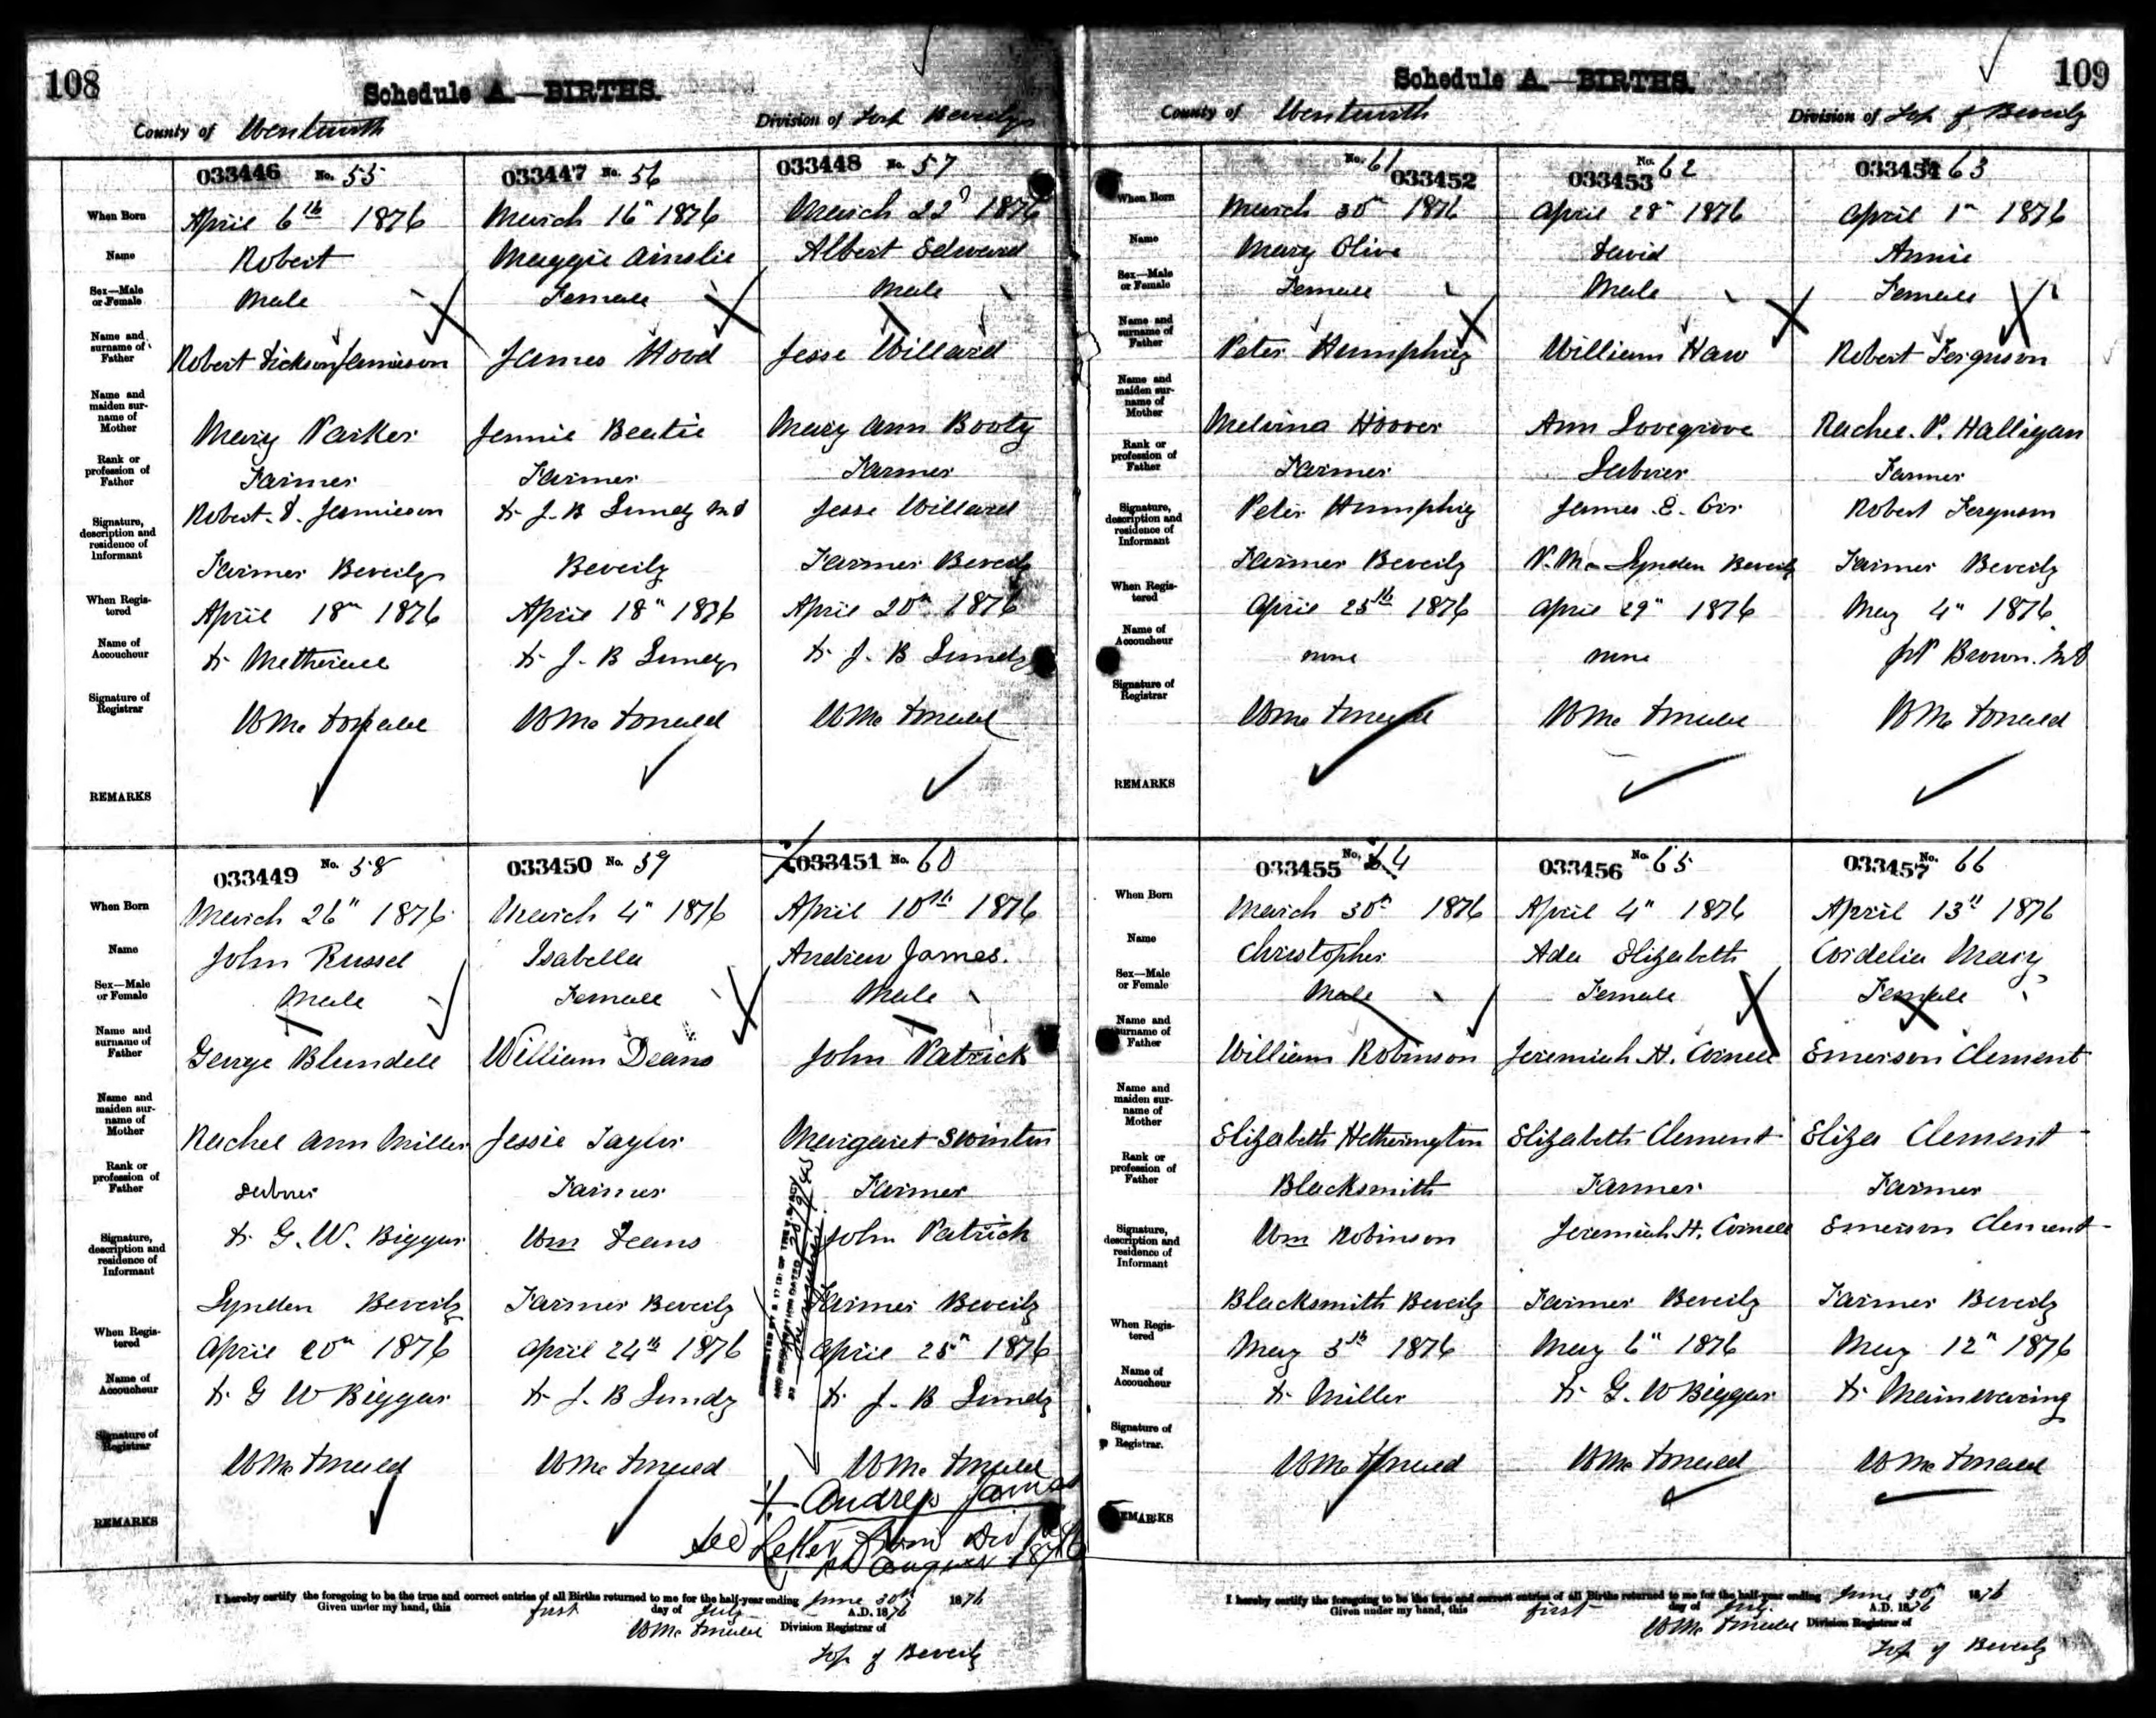 108
Schedule A.—BIRTHS.
County of Wentworth Division of Tosp Beverly
033446 No. 55 033447 No. 56 033448 No. 57
When Born April 6th 1876 March 16" 1876 March 22d 1876
Name Robert Maggie Ainslie Albert Edward
Sex—Male or Female Male Female Male
Name and surname of Father Robert Dickson Jamieson James Hood Jesse Willard
Name and maiden surname of Mother Mary Parker Jennie Beatie Mary Ann Booty
Rank or profession of Father Farmer Farmer Farmer
Signature, description and residence of Informant Robert. D. Jamieson Dr J. B Lundy MD Jesse Willard
Farmer Beverly Beverly Farmer Beverly
When Registered April 18" 1876 April 18" 1876 April 20" 1876
Name of Accoucheur Dr Metherell Dr J. B Lundy Dr J. B Lundy
Signature of Registrar W Mc Donald W Mc Donald W Mc Donald
REMARKS
033449 No. 58 033450 No. 59 033451 No. 60
When Born March 26" 1876 March 4" 1876 April 10th 1876
Name John Russel Isabella Andrew James.
Sex—Male or Female Male Female Male
Name and surname of Father George Blundell William Deans John Patrick
Name and maiden surname of Mother Rachel Ann Miller Jessie Taylor Margaret Swinton
Rank or profession of Father Laborer Farmer Farmer
Signature, description and residence of Informant Dr G. W. Biggar Wm Deans John Patrick
Lynden Beverly Farmer Beverly Farmer Beverly
When Registered April 20" 1876 April 24th 1876 April 25" 1876
Name of Accoucheur Dr G W Biggar Dr J. B Lundy Dr J. B Lundy
Signature of Registrar W Mc Donald W Mc Donald W Mc Donald
Andrew James
REMARKS See Letter from Div
August 1876
I hereby certify the foregoing to be the true and correct entries of all Births returned to me for the half-year ending June 30th 1876
Given under my hand, this first day of July A.D. 1876
W Mc Donald Division Registrar of
Tosp of Beverly
109
Schedule A.—BIRTHS.
County of Wentworth Division of Tosp of Beverly
No. 61 033452 No. 62 033453 033454 63
When Born March 30" 1876 April 28" 1876 April 1" 1876
Name Mary Olive David Annie
Sex—Male or Female Female Male Female
Name and surname of Father Peter Humphrey William Haw Robert Ferguson
Name and maiden surname of Mother Melvina Hoover Ann Lovegrove Rachel. P. Halligan
Rank or profession of Father Farmer Laborer Farmer
Signature, description and residence of Informant Peter Humphrey James. E. Orr Robert Ferguson
Farmer Beverly P. M. Lynden Beverly Farmer Beverly
When Registered April 25th 1876 April 29" 1876 May 4" 1876
Name of Accoucheur none none Brown. MD
Signature of Registrar W Mc Donald W Mc Donald W Mc Donald
REMARKS
033455 No. 64 033456 No. 65 033457 No. 66
When Born March 30" 1876 April 4" 1876 April 13" 1876
Name Christopher Ada Elizabeth Cordelia Mary
Sex—Male or Female Male Female Female
Name and surname of Father William Robinson Jeremiah H. Cornell Emerson Clement
Name and maiden surname of Mother Elizabeth Hetherington Elizabeth Clement Eliza Clement
Rank or profession of Father Blacksmith Farmer Farmer
Signature, description and residence of Informant Wm Robinson Jeremiah H. Cornell Emerson Clement
Blacksmith Beverly Farmer Beverly Farmer Beverly
When Registered May 5th 1876 May 6" 1876 May 12" 1876
Name of Accoucheur Dr Miller Dr G. W Biggar Dr Mainwaring
Signature of Registrar. W Mc Donald W Mc Donald W Mc Donald
REMARKS
I hereby certify the foregoing to be the true and correct entries of all Births returned to me for the half-year ending June 30" 1876
Given under my hand, this first day of July. A.D. 1876
W Mc Donald Division Registrar of
Tosp of Beverly